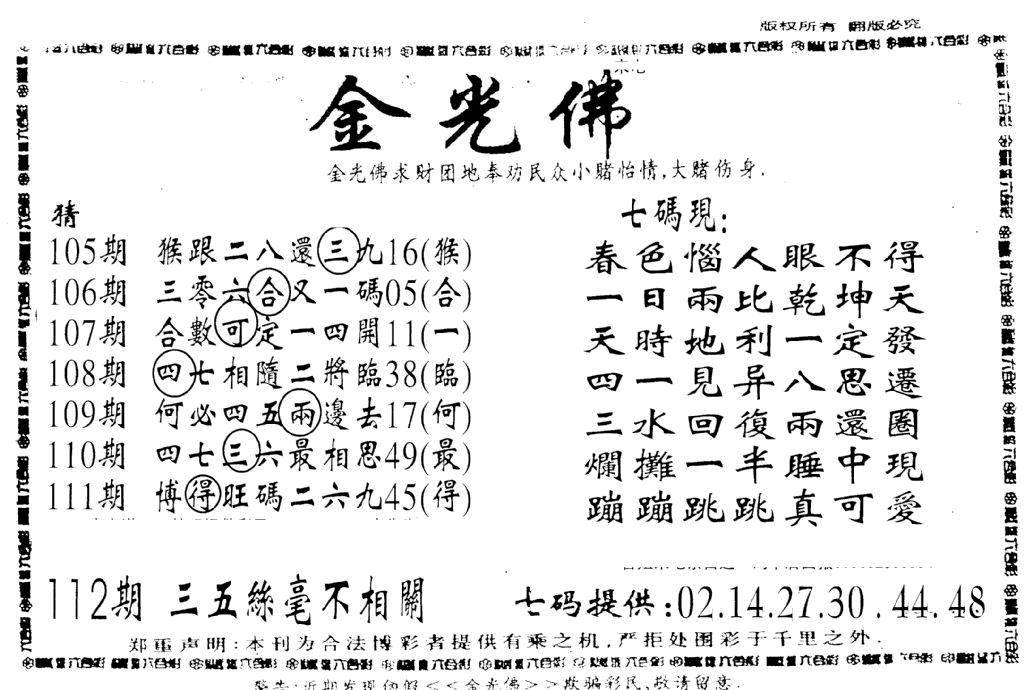 版权所有 翻版必究
金光佛
金光佛求财团地奉劝民众小赌怡情,大赌伤身.
猜
105期 猴跟二八還三九16(猴)
106期 三零六合又一碼05(合)
107期 合數可定一四開11(一)
108期 四七相隨二將臨38(臨)
109期 何必四五兩邊去17(何)
110期 四七三六最相思49(最)
111期 博得旺碼二六九45(得)
七碼現:
春色惱人眼不得
一日兩比乾坤天
天時地利一定發
四一見异八思遷
三水回復兩還圈
爛攤一半睡中現
蹦蹦跳跳真可愛
112期 三五絲毫不相關
七码提供:02.14.27.30.44.48
郑重声明:本刊为合法博彩者提供有乘之机,严拒处围彩于千里之外.
警告:近期发现仿假<<金光佛>>欺骗彩民,敬请留意.